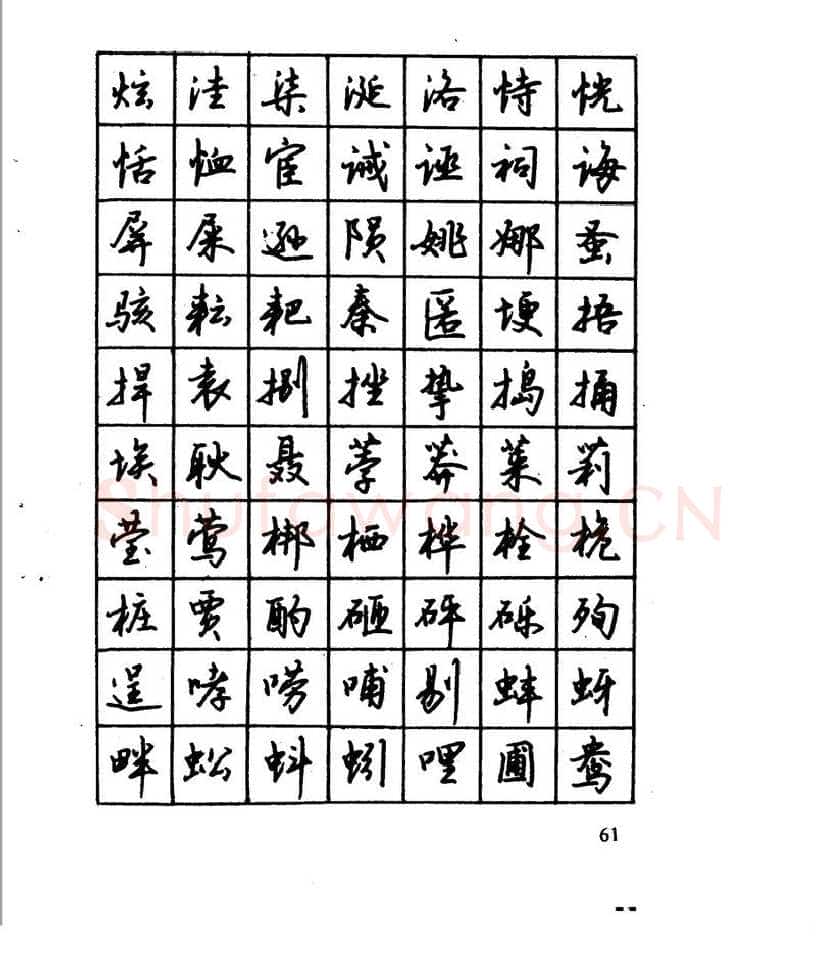 炫洼柒涎洛恃恍
恬恤宦诫诬祠诲
屏屎逊陨姚娜蚤
骇耘耙秦匿埂捂
捍袁捌挫挚捣捅
埃耿聂荸莽莱莉
Shufawang.CN
莹莺梆栖桦栓桅
桩贾酌砸砰砾殉
逞哮唠哺剔蚌蚜
畔蚣蚪蚓哩圃鸯
61